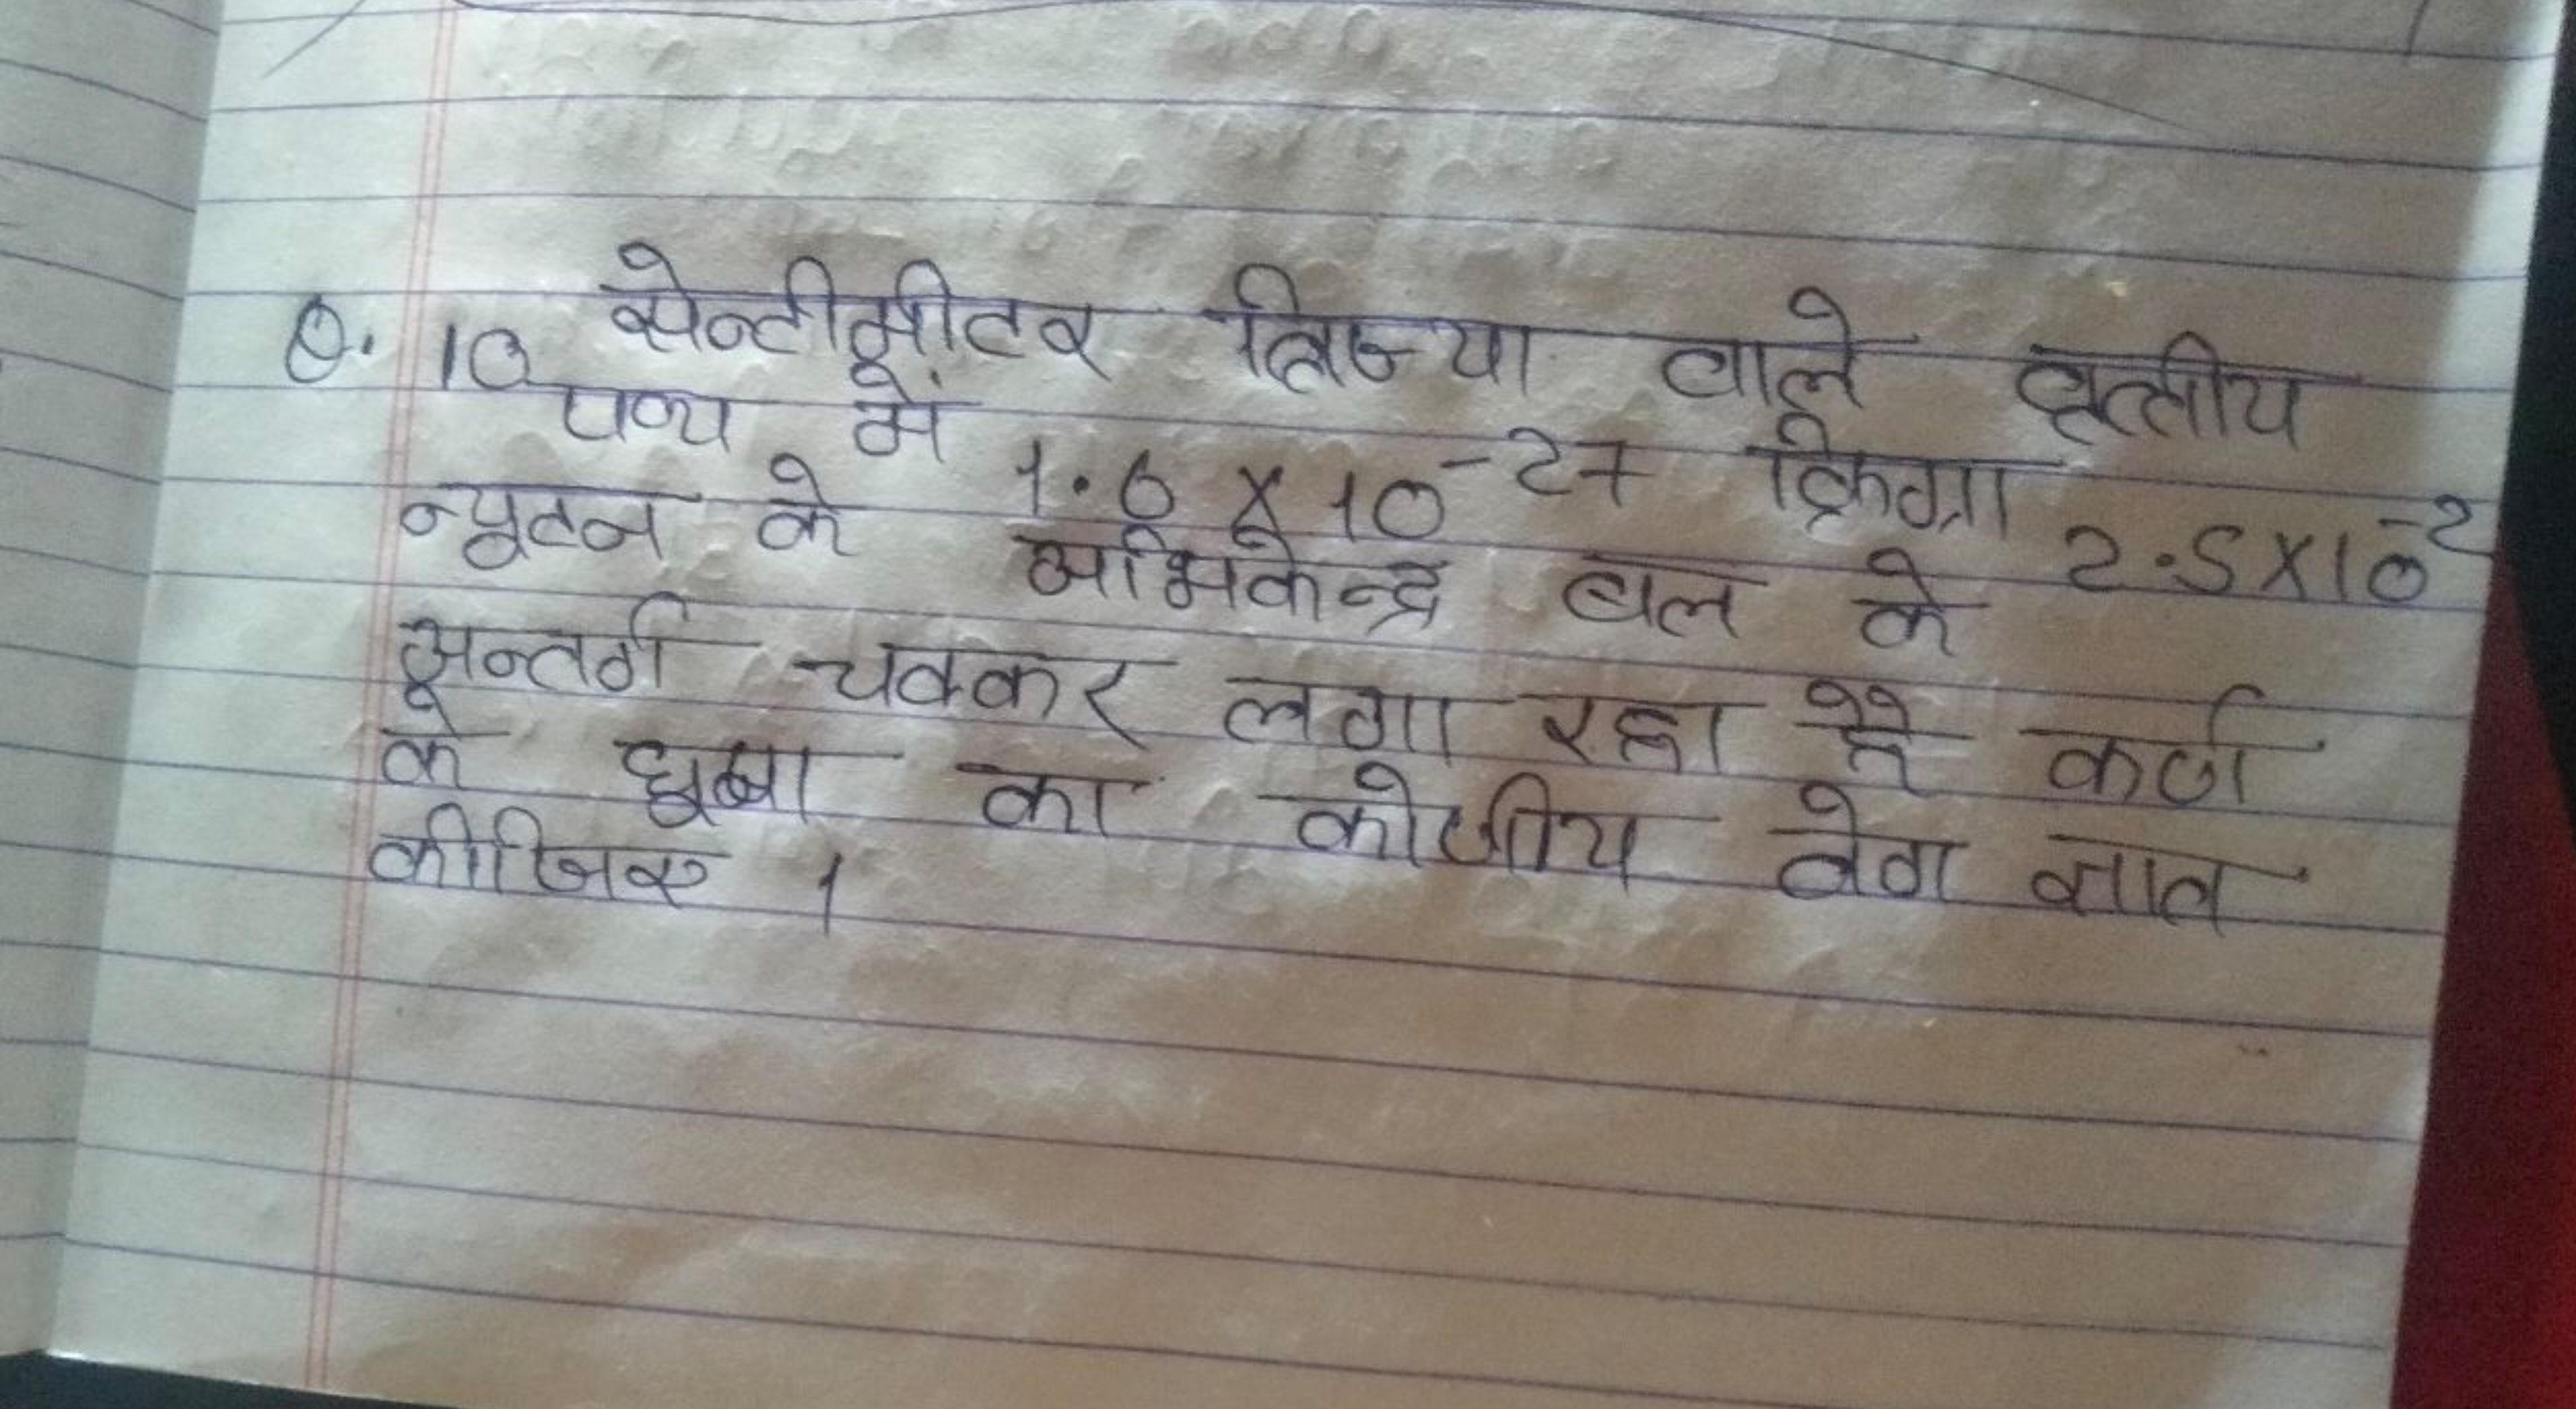 Q. 10 सेन्टीमीटर त्रिज्या वाले वृत्तीय
पथ्य में 1.6 X 10⁻²⁷ किग्रा 2.5X10⁻²
न्यूटन के अभिकेन्द्र बल के
अन्तर्ग चक्कर लगा रहा है कर्ण
के का कोणीय वेग ज्ञात
कीजिए ।